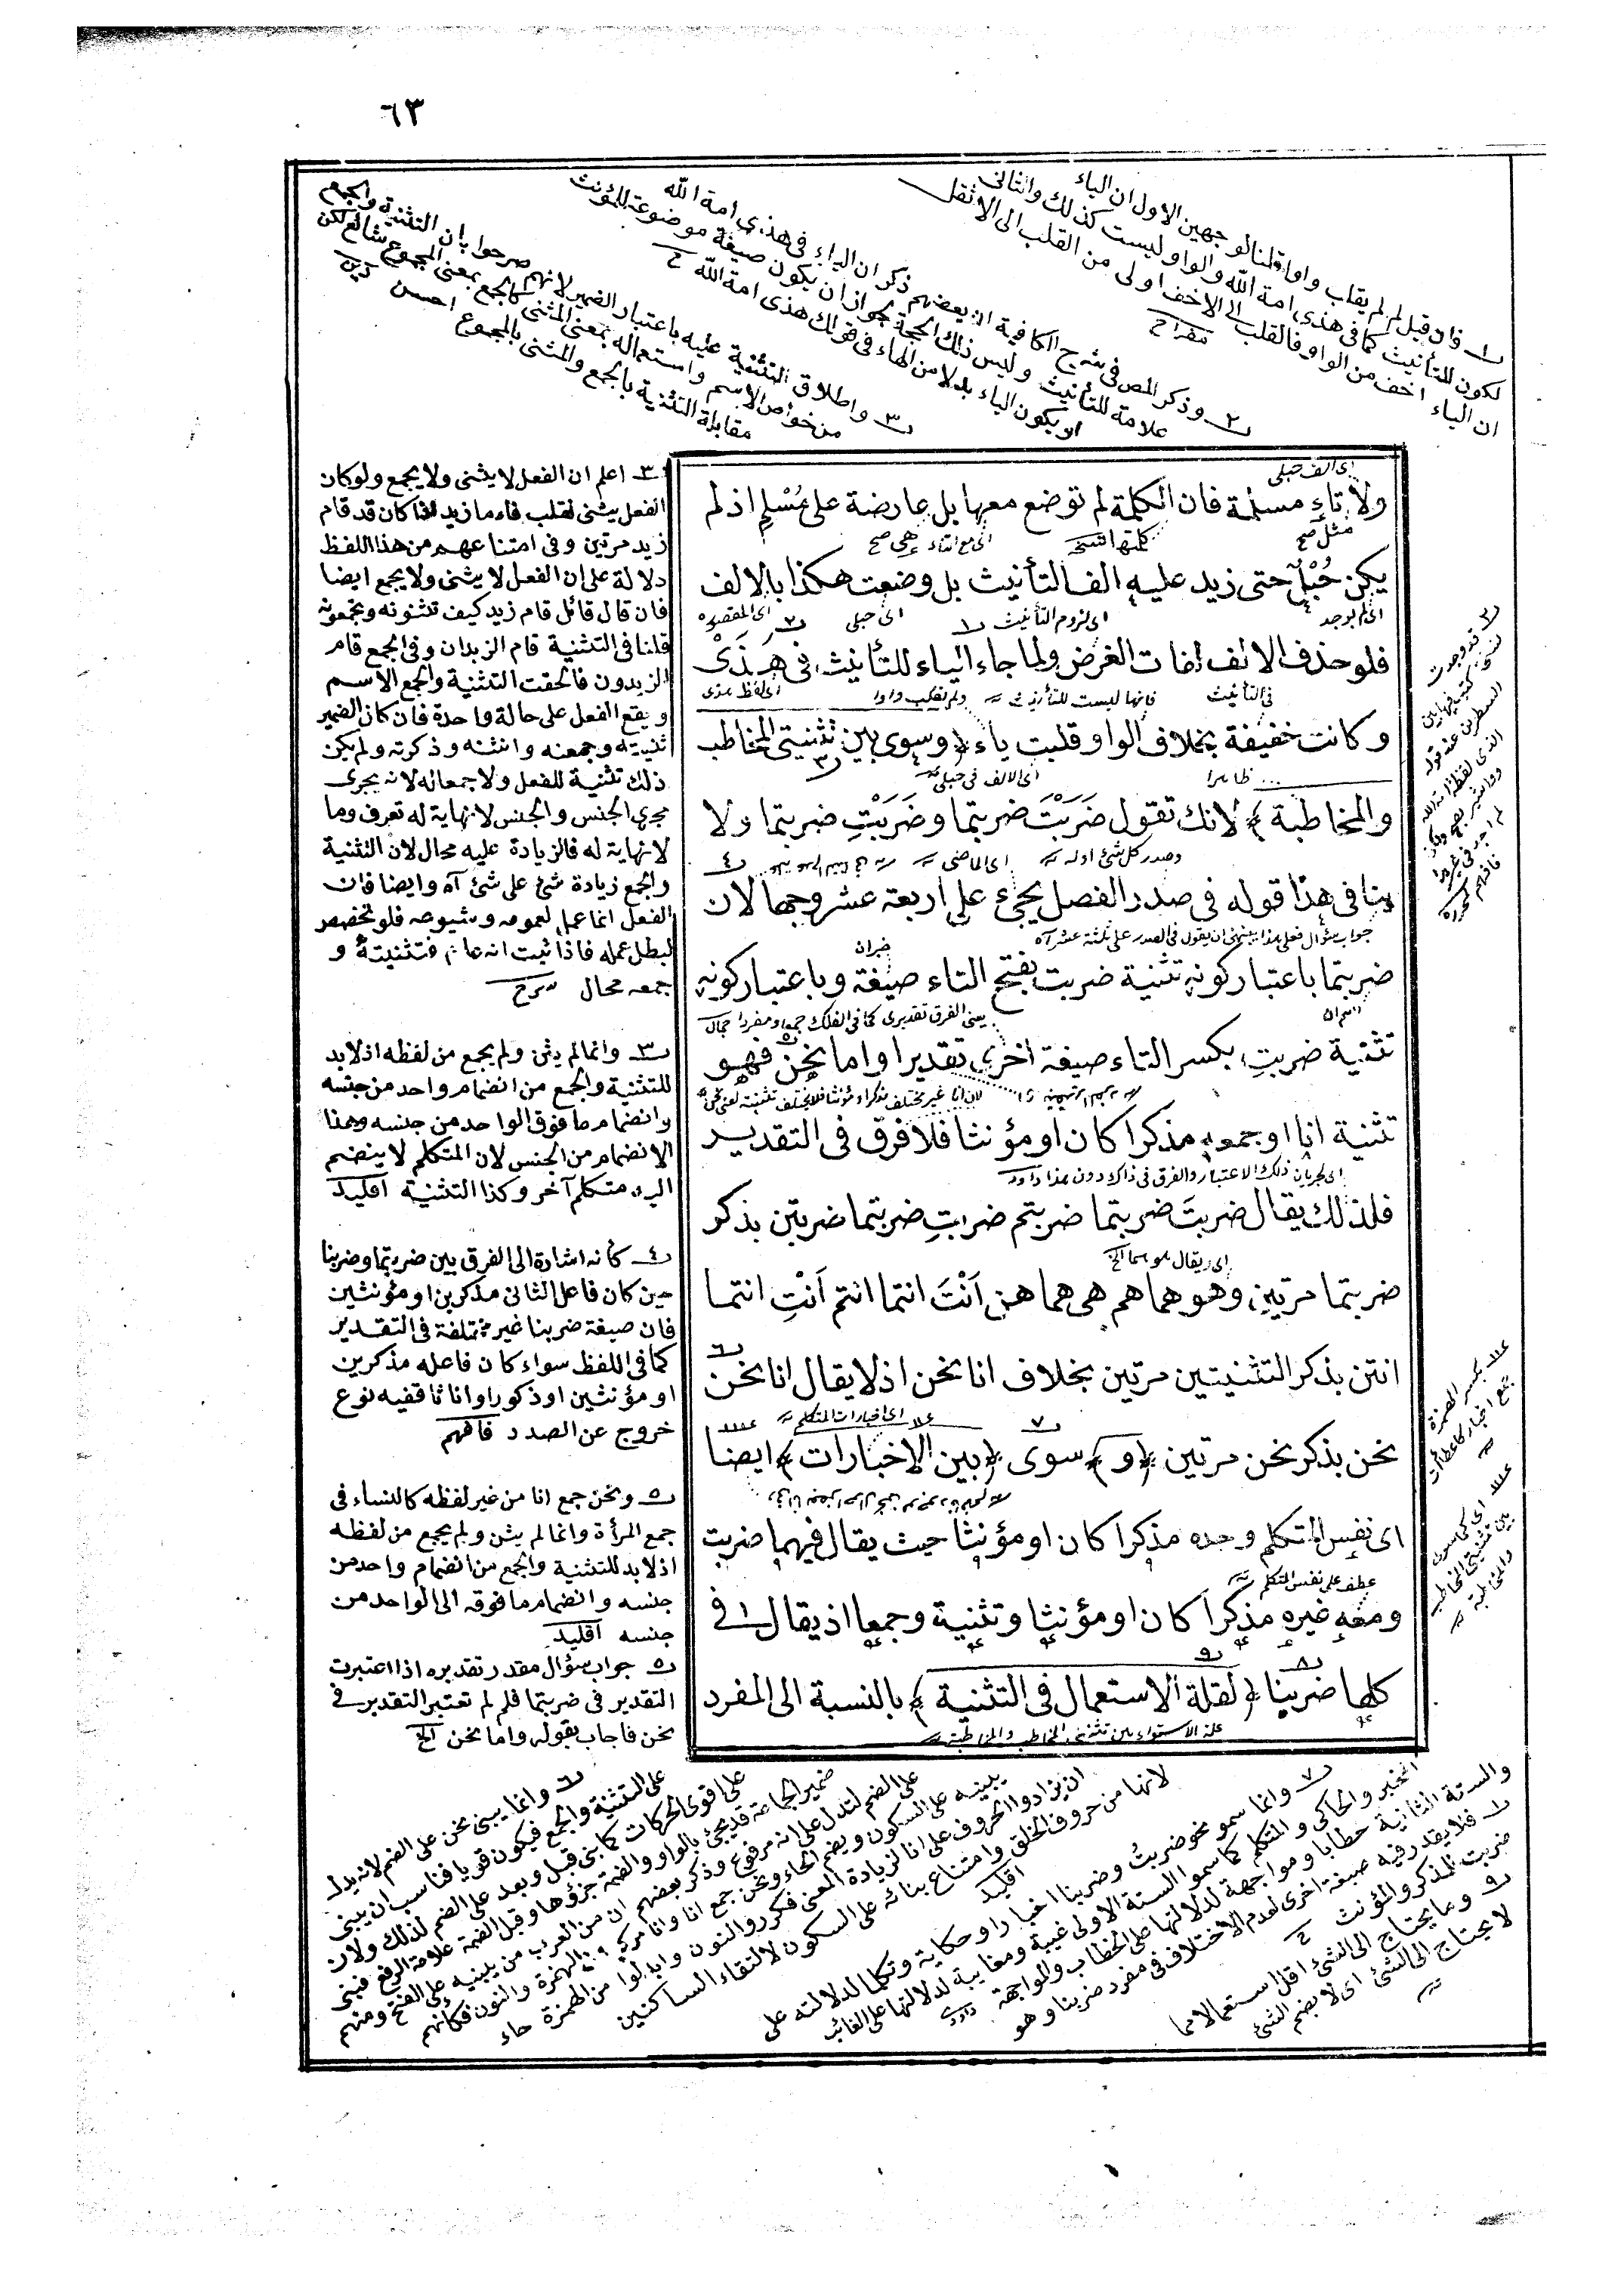 ٦٣
١ فان قيل لم لم يقلب واوا قلنا لوجهين الاول ان الياء
لكون للتأنيث كما فى هذى امة الله والواو ليست كذلك والثانى
ان الياء اخف من الواو فالقلب الى الاخف اولى من القلب الى الاثقل
مفراح
٢ وذكر المص فى شرح الكافية ان بعضهم ذكر ان الياء فى هذى امة الله
علامة للتأنيث وليس ذلك الحجة لجواز ان يكون صيغة موضوعة للمؤنث
او يكون الياء بدلا من الهاء فى قولك هذى امة الله ح
٣ واطلاق التثنية عليه باعتبار الضمير لانهم صرحوا بان التثنية والجمع
من خواص الاسم واستعماله بمعنى المثنى كالجمع بمعنى المجموع شائع لكن
مقابلة التثنية بالجمع والمثنى بالمجموع احسن
اى الف حبلى
ولا تاء مسلمة فان الكلمة لم توضع معها بل عارضة على مُسْلِمٍ اذ لم
مثل صح
اى مع التاء هى صح
يكن حُبْلٌ حتى زيد عليه الف التأنيث بل وضعت هكذا بالالف
اى لم يوجد
اى لزوم التأنيث
اى حبلى
اى المقصورة
فلو حذف الالف لفات الغرض ولما جاء الياء للتأنيث فى هَذَى
فى التأنيث
فانها ليست للتأنيث
ولم تقلب واوا
اى لفظ هذى
وكانت خفيفة بخلاف الواو قلبت ياء ﴿وسوى بين تثنيتى المخاطب
ظاهرا
اى الالف فى حبلى
والمخاطبة﴾ لانك تقول ضَرَبْتَ ضربتما وضَرَبْتِ ضربتما ولا
وصدر كل شئ اوله
اى الماضى
ينافى هذا قوله فى صدر الفصل يجئ على اربعة عشر وجها لان
جواب سؤال فعلى هذا ينبغى ان يقول فى الصدر على ثلثة عشر آه
خبران
ضربتما باعتبار كونه تثنية ضربت بفتح التاء صيغة وباعتبار كونه
يعنى الفرق تقديرى كما فى الفلك جمعا ومفردا جمال
تثنية ضربتِ بكسر التاء صيغة اخرى تقديرا واما نحن فهو
لان انا غير مختلف مذكرا ومؤنثا فلا يختلف تثنيته اعنى نحن
تثنية انا او جمعه مذكرا كان او مؤنثا فلا فرق فى التقدير
اى لجريان ذلك الاعتبار والفرق فى ذاك دون هذا داود
فلذلك يقال ضربتَ ضربتما ضربتم ضربتِ ضربتما ضربتن بذكر
اى ويقال هو هما الخ
ضربتما مرتين وهو هما هم هى هما هن اَنْتَ انتما انتم اَنْتِ انتما
انتن بذكر التثنيتين مرتين بخلاف انا نحن اذ لا يقال انا نحن
اى اخبارات المتكلم
نحن بذكر نحن مرتين ﴿و﴾ سوى ﴿بين الاخبارات﴾ ايضا
اى نفس المتكلم وحده مذكرا كان او مؤنثا حيث يقال فيهما ضربت
عطف على نفس المتكلم
ومعه غيره مذكرا كان او مؤنثا وتثنية وجمعا اذ يقال فى
كلها ضربنا ﴿لقلة الاستعمال فى التثنية﴾ بالنسبة الى المفرد
علة الاستواء بين تثنيتى المخاطب والمخاطبة
٣ اعلم ان الفعل لا يثنى ولا يجمع ولو كان
الفعل يثنى لقلب قاما زيد اذا كان قد قام
زيد مرتين وفى امتناعهم من هذا اللفظ
دلالة على ان الفعل لا يثنى ولا يجمع ايضا
فان قال قائل قام زيد كيف تثنونه وتجمعونه
قلنا فى التثنية قام الزيدان وفى الجمع قام
الزيدون فالحقت التثنية والجمع الاسم
ويقع الفعل على حالة واحدة فان كان الضمير
ثنيته وجمعته وانثته وذكرته ولم يكن
ذلك تثنية للفعل ولا جمعا له لانه يجرى
مجرى الجنس والجنس لا نهاية له تعرف وما
لا نهاية له فالزيادة عليه محال لان التثنية
والجمع زيادة شئ على شئ آه وايضا فان
الفعل انما عمل لعمومه وشيوعه فلو تخصص
لبطل عمله فاذا ثبت انه عام فتثنيته و
جمعه محال شرح
٣ وانما لم يثن ولم يجمع من لفظه اذ لا بد
للتثنية والجمع من انضمام واحد من جنسه
وانضمام ما فوق الواحد من جنسه وهمنا
الانضمام من الجنس لان المتكلم لا ينضم
اليه متكلم آخر وكذا التثنية اقليد
٤ كأنه اشارة الى الفرق بين ضربتما وضربنا
حين كان فاعل الثانى مذكرين او مؤنثين
فان صيغة ضربنا غير مختلفة فى التقدير
كما فى اللفظ سواء كان فاعله مذكرين
او مؤنثين او ذكورا واناثا ففيه نوع
خروج عن الصدد فافهم
٥ ونحن جمع انا من غير لفظه كالنساء فى
جمع المرأة وانما لم يثن ولم يجمع من لفظه
اذ لا بد للتثنية والجمع من انضمام واحد من
جنسه وانضمام ما فوقه الى الواحد من
جنسه اقليد
٥ جواب سؤال مقدر تقديره اذا اعتبرت
التقدير فى ضربتما فلم لم تعتبر التقدير فى
نحن فاجاب بقوله واما نحن الخ
٦ وانما يبنى نحن على الضم لانه يدل
على التثنية والجمع فيكون قويا فناسب ان يبنى
على اقوى الحركات كما بنى قبل وبعد على الضم لذلك ولان
ضمير الجماعة قد يجئ بالواو والضمة جزؤها وقيل الضمة علامة الرفع فبنى
على الضم لتدل على انه مرفوع وذكر بعضهم ان من العرب من يبنيه على الفتح ومنهم
يبنيه على السكون ويضم الحاء ونحن جمع انا وانا مركب من الهمزة والنون فكأنهم
ان يزادوا الحروف على انا لزيادة المعنى فكرروا النون وابدلوا من الهمزة حاء
لانها من حروف الحلق وامتناع بنائه على السكون لالتقاء الساكنين
اقليد
٧ وانما سمو نحو ضربتُ وضربنا اخبارا وحكاية وتكلما لدلالته على
المخبر والحاكى والمتكلم كما سموا الستة الاولى غيبة ومغايبة لدلالتها على الغائب
والستة الثانية خطابا ومواجهة لدلالتها على الخطاب والمواجهة داود
٨ فلا يقدر فيه صيغة اخرى لعدم الاختلاف فى مفرد ضربنا وهو
ضربت للمذكر والمؤنث ح
٩ وما يحتاج الى الشئ اقل استعمالا مما
لا يحتاج الى الشئ اى لا يضم الشئ